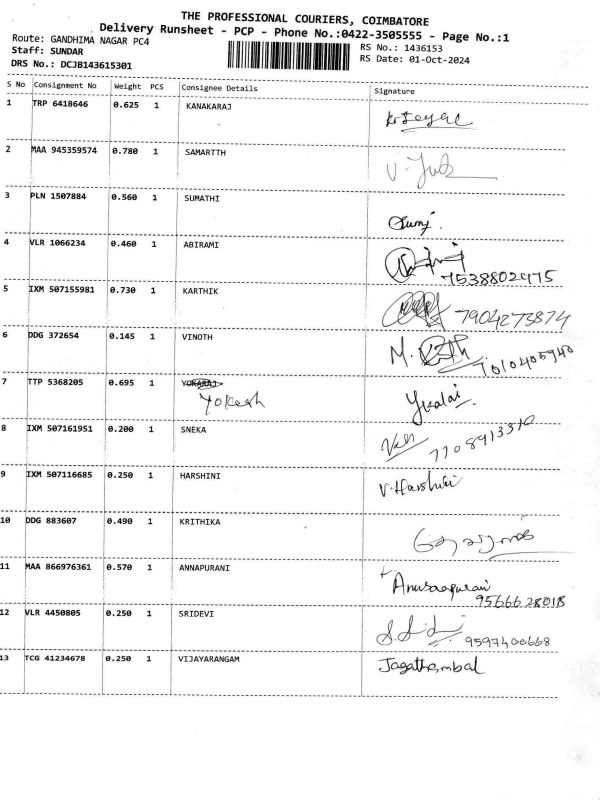 THE PROFESSIONAL COURIERS, COIMBATORE
Delivery Runsheet - PCP - Phone No.:0422-3505555 - Page No.:1
Route: GANDHIMA NAGAR PC4
Staff: SUNDAR
DRS No.: DCJB143615301
RS No.: 1436153
RS Date: 01-Oct-2024
S No Consignment No Weight PCS Consignee Details Signature
1 TRP 6418646 0.625 1 KANAKARAJ
2 MAA 945359574 0.780 1 SAMARTTH
3 PLN 1507884 0.560 1 SUMATHI
4 VLR 1066234 0.460 1 ABIRAMI
7538802975
5 IXM 507155981 0.730 1 KARTHIK 7904273874
6 DDG 372654 0.145 1 VINOTH M. 7010405940
7 TTP 5368205 0.695 1 YOKARAJ
Yokesh
8 IXM 507161951 0.200 1 SNEKA 7708913310
9 IXM 507116685 0.250 1 HARSHINI V. Harshini
10 DDG 883607 0.490 1 KRITHIKA
11 MAA 866976361 0.570 1 ANNAPURANI
95666 28018
12 VLR 4450805 0.250 1 SRIDEVI
9597400668
13 TCG 41234678 0.250 1 VIJAYARANGAM Jagathambal